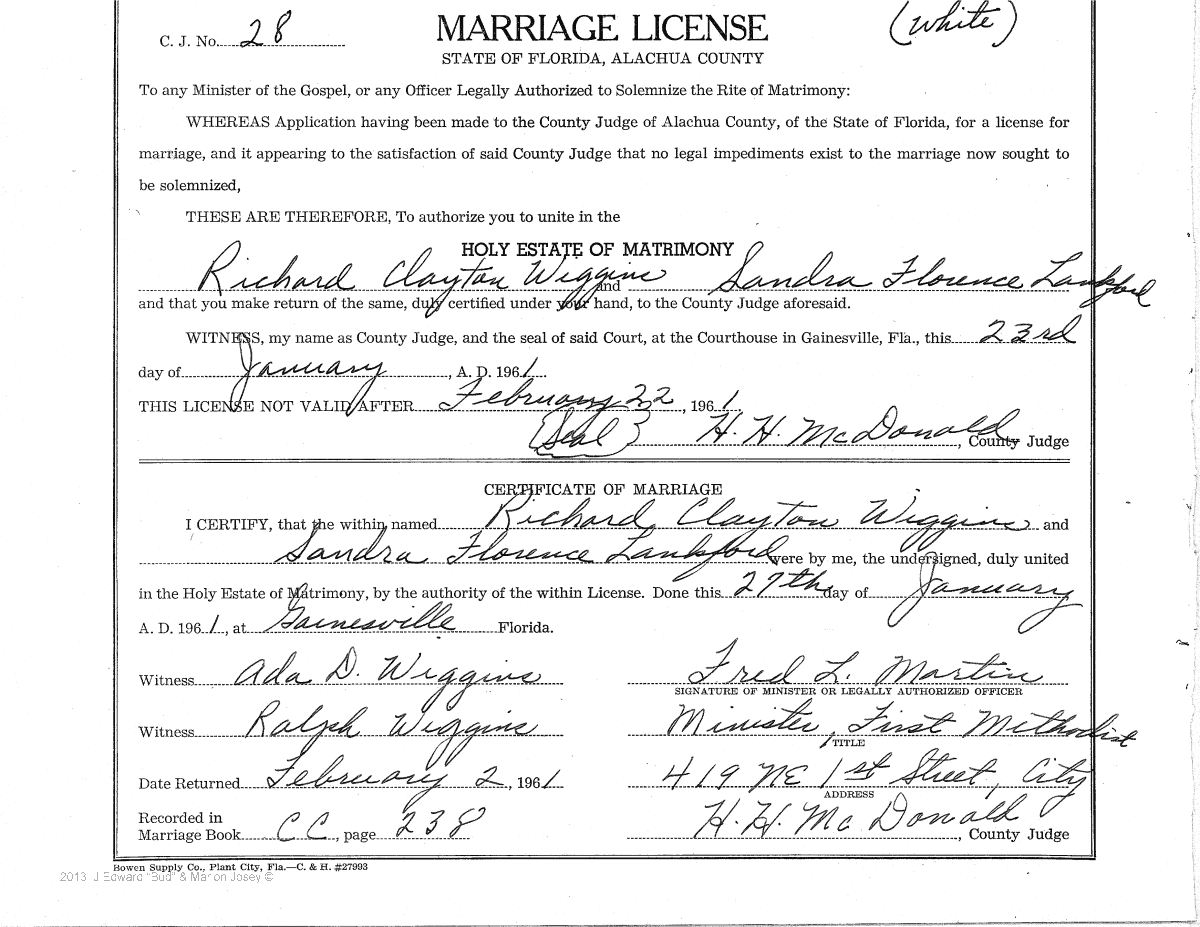 C. J. No. 28
MARRIAGE LICENSE
(white)
STATE OF FLORIDA, ALACHUA COUNTY
To any Minister of the Gospel, or any Officer Legally Authorized to Solemnize the Rite of Matrimony:
WHEREAS Application having been made to the County Judge of Alachua County, of the State of Florida, for a license for
marriage, and it appearing to the satisfaction of said County Judge that no legal impediments exist to the marriage now sought to
be solemnized,
THESE ARE THEREFORE, To authorize you to unite in the
HOLY ESTATE OF MATRIMONY
Richard Clayton Wiggins and Sandra Florence Lankford
and that you make return of the same, duly certified under your hand, to the County Judge aforesaid.
WITNESS, my name as County Judge, and the seal of said Court, at the Courthouse in Gainesville, Fla., this 23rd
day of January, A. D. 1961.
THIS LICENSE NOT VALID AFTER February 22, 1961
(Seal) H. H. McDonald, County Judge
CERTIFICATE OF MARRIAGE
I CERTIFY, that the within named Richard Clayton Wiggins and
Sandra Florence Lankford were by me, the undersigned, duly united
in the Holy Estate of Matrimony, by the authority of the within License. Done this 27th day of January
A. D. 1961, at Gainesville Florida.
Witness Ada D. Wiggins
Fred L. Martin
SIGNATURE OF MINISTER OR LEGALLY AUTHORIZED OFFICER
Witness Ralph Wiggins
Minister, First Methodist
TITLE
Date Returned February 2, 1961
419 NE 1st Street, City
ADDRESS
Recorded in
Marriage Book CC, page 238
H. H. McDonald, County Judge
Bowen Supply Co., Plant City, Fla.—C. & H. #27993
2013 J Edward "Bud" & Marion Josey ©